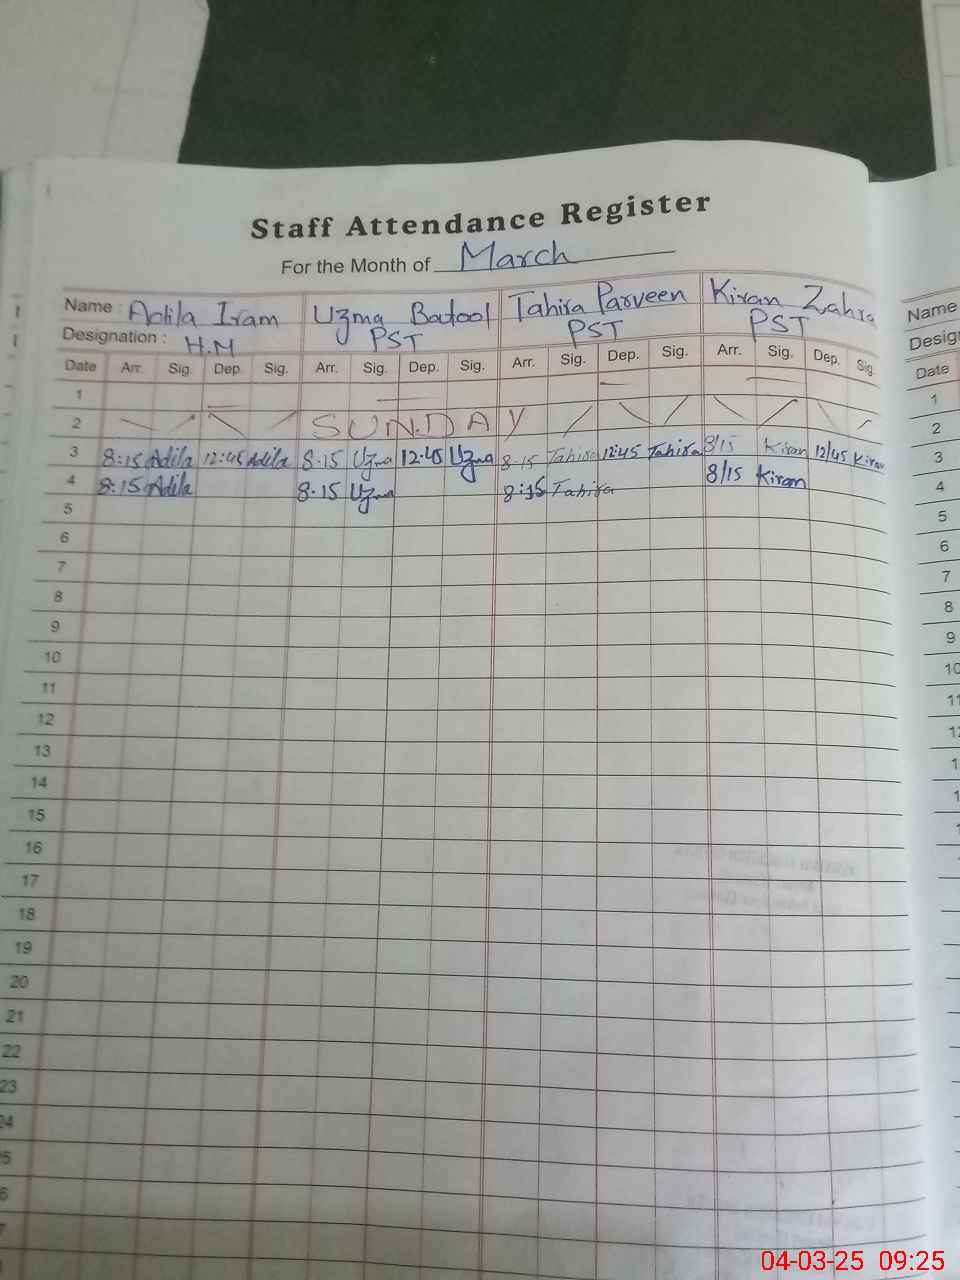 Staff Attendance Register
For the Month of March
Name : Adila Iram Uzma Batool Tahira Parveen Kiran Zahra
Designation : H.M PST PST PST
Date Arr. Sig. Dep. Sig. Arr. Sig. Dep. Sig. Arr. Sig. Dep. Sig. Arr. Sig. Dep. Sig.
1
2 SUNDAY
3 8:15 Adila 12:45 Adila 8.15 Uzma 12.45 Uzma 8.15 Tahira 12:45 Tahira 8/15 Kiran 12/45 Kiran
4 8:15 Adila 8.15 Uzma 8:15 Tahira 8/15 Kiran
5
6
7
8
9
10
11
12
13
14
15
16
17
18
19
20
21
22
23
24
Name
Date
1
2
3
4
5
6
7
8
9
10
11
04-03-25 09:25